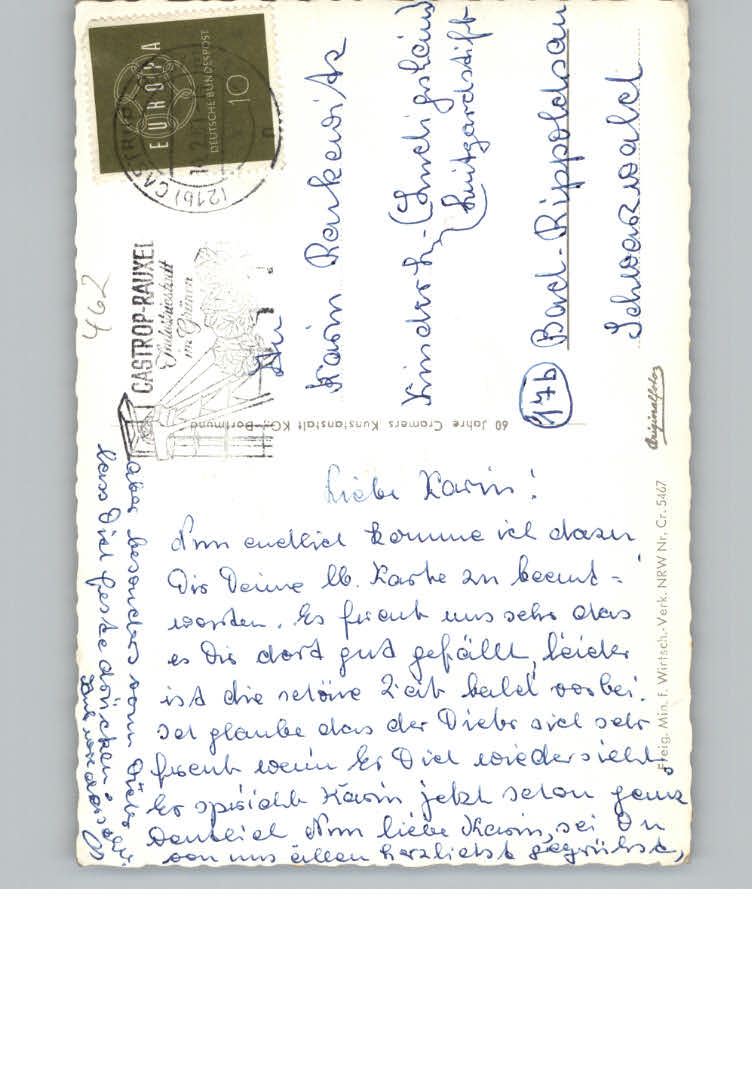 EUROPA
DEUTSCHE BUNDESPOST
10
(21b) CASTROP
CASTROP-RAUXEL
Industriestadt
im Grünen
462
An
Karin
Kinderh.-(Ludigsheim
(Luitgardstift
(17b) Bad-Rippoldsau
Schwarzwald
60 Jahre Cramers Kunstanstalt KG., Dortmund
Originalfoto
Freig. Min. f. Wirtsch.-Verk. NRW Nr. Cr. 5467
Liebe Karin!
Nun endlich komme ich dazu
Dir Deine lb. Karte zu beant=
worten. Es freut uns sehr das
es Dir dort gut gefällt, leider
ist die schöne Zeit bald vorbei.
Ich glaube das der Dieter sich sehr
freut wenn Er Dich wiedersieht.
Er spricht Karin jetzt schon ganz
Deutlich Nun liebe Karin, sei Du
von uns allen herzlichst gegrüßt,
aber besonders vom Dieter
lass Dich feste drücken.